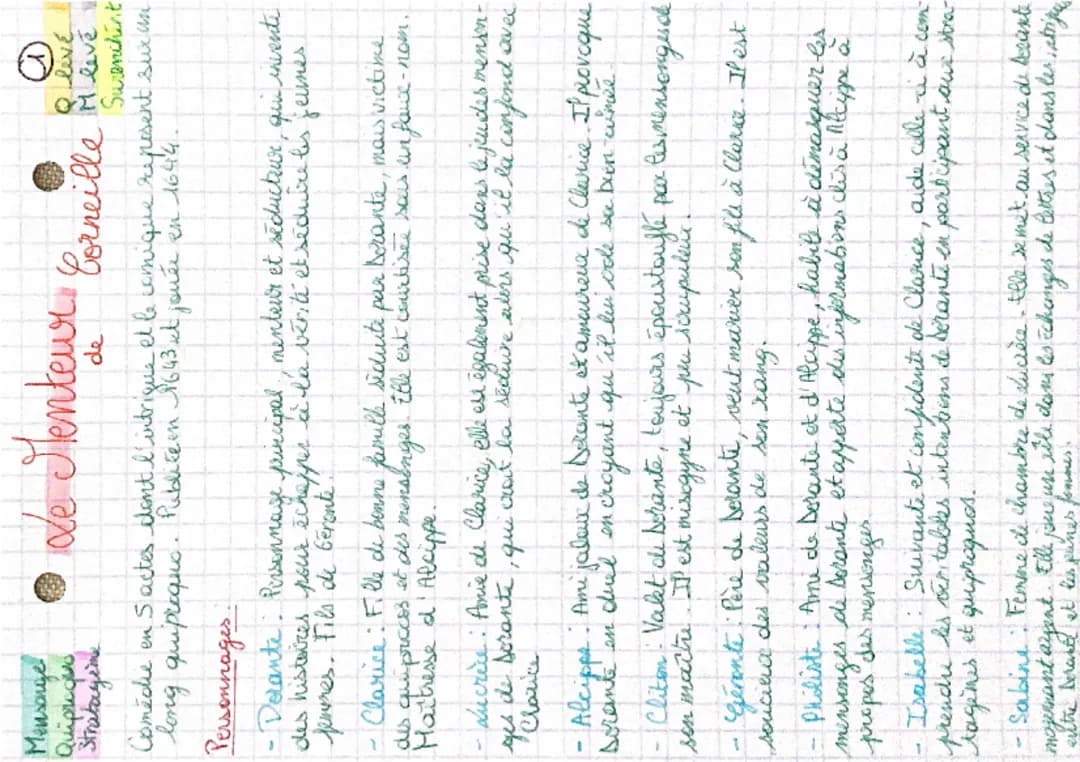 Mensonge
Quiproquo
Stratagème
Le Menteur
de Corneille
①
Q levé
M levé
Surenchère
Comédie en 5 actes dont l'intrigue et le comique reposent sur un
long quiproquo. Publiée en 1643 et jouée en 1644.
Personnages :
- Dorante : Personnage principal, menteur et séducteur, qui invente
des histoires pour échapper à la vérité et séduire les jeunes
femmes. Fils de Géronte.
- Clarice : Fille de bonne famille séduite par Dorante, mais victime
des quiproquos et des mensonges. Elle est courtisée sous un faux-nom.
Maîtresse d'Alcippe.
- Lucrèce : Amie de Clarice, elle est également prise dans le jeu des menson-
ges de Dorante, qui croit la séduire alors qu'il la confond avec
Clarice
- Alcippe : Ami jaloux de Dorante et amoureux de Clarice. Il provoque
Dorante en duel en croyant qu'il lui vole sa bien-aimée.
- Cliton : Valet de Dorante, toujours époustouflé par les mensonges de
son maître. Il est misogyne et peu scrupuleux.
- Géronte : Père de Dorante, veut marier son fils à Clarice. Il est
soucieux des valeurs de son rang.
- Philiste : Ami de Dorante et d'Alcippe, habile à démasquer les
mensonges de Dorante et apporte des informations clés à Alcippe à
propos des mensonges
- Isabelle : Suivante et confidente de Clarice, aide celle-ci à com-
prendre les véritables intentions de Dorante en participant aux stra-
tagèmes et quiproquos.
- Sabine : Femme de chambre de Lucrèce. Elle se met au service de Dorante
moyennant argent. Elle joue un rôle dans les échanges de lettres et dans les
entre et les jeunes femmes.